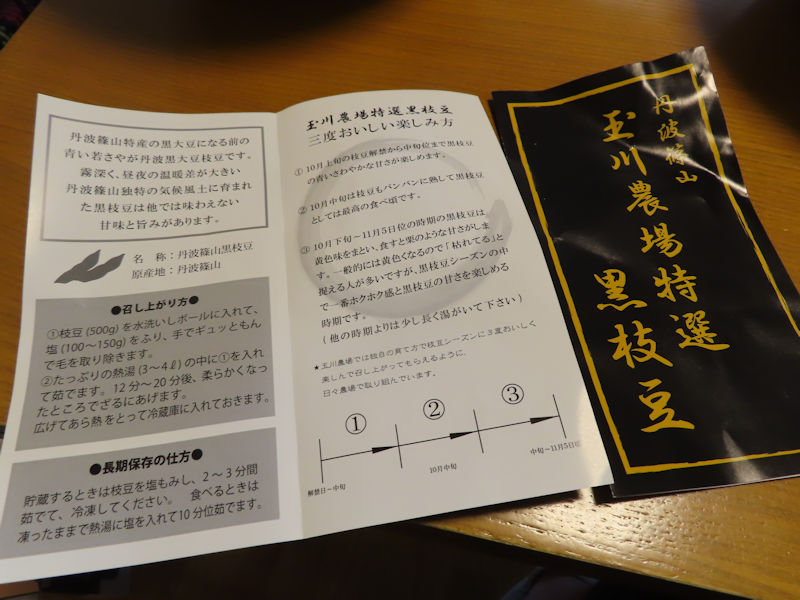 丹波篠山特産の黒大豆になる前の
青い若さやが丹波黒大豆枝豆です。
霧深く、昼夜の温暖差が大きい
丹波篠山独特の気候風土に育まれ
た黒枝豆は他では味わえない
甘味と旨みがあります。
名　称：丹波篠山黒枝豆
原産地：丹波篠山
●召し上がり方●
①枝豆(500g)を水洗いしボールに入れて、
塩(100〜150g)をふり、手でギュッともん
で毛を取り除きます。
②たっぷりの熱湯(3〜4ℓ)の中に①を入れ
て茹でます。12分〜20分後、柔らかくなっ
たところでざるにあげます。
広げてあら熱をとって冷蔵庫に入れておきます。
●長期保存の仕方●
貯蔵するときは枝豆を塩もみし、2〜3分間
茹でて、冷凍してください。　食べるときは
凍ったままで熱湯に塩を入れて10分位茹でます。
玉川農場特選黒枝豆
三度おいしい楽しみ方
① 10月上旬の枝豆解禁から中旬位まで黒枝豆
の青いさわやかな甘さが楽しめます。
② 10月中旬は枝豆もパンパンに熟して黒枝豆
としては最高の食べ頃です。
③ 10月下旬〜11月5日位の時期の黒枝豆は
黄色味をまとい、食すと栗のような甘さがしま
す。一般的には黄色くなるので「枯れてる」と
捉える人が多いですが、黒枝豆シーズンの中
で一番ホクホク感と黒枝豆の甘さを楽しめる
時期です。
(他の時期よりは少し長く湯がいて下さい)
★玉川農場では独自の育て方で枝豆シーズンに3度おいしく
楽しんで召し上がってもらえるように、
日々農場で取り組んでいます。
①
②
③
解禁日〜中旬
10月中旬
中旬〜11月5日位
丹波篠山
玉川農場特選
黒枝豆